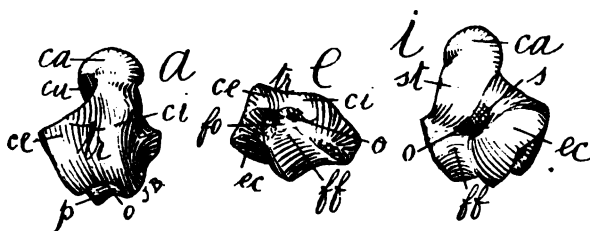 ca a
cu
ce tr ci
p o J.B.
e
ce tr ci
fo o
ec ff
i
ca
st s
o ec
ff